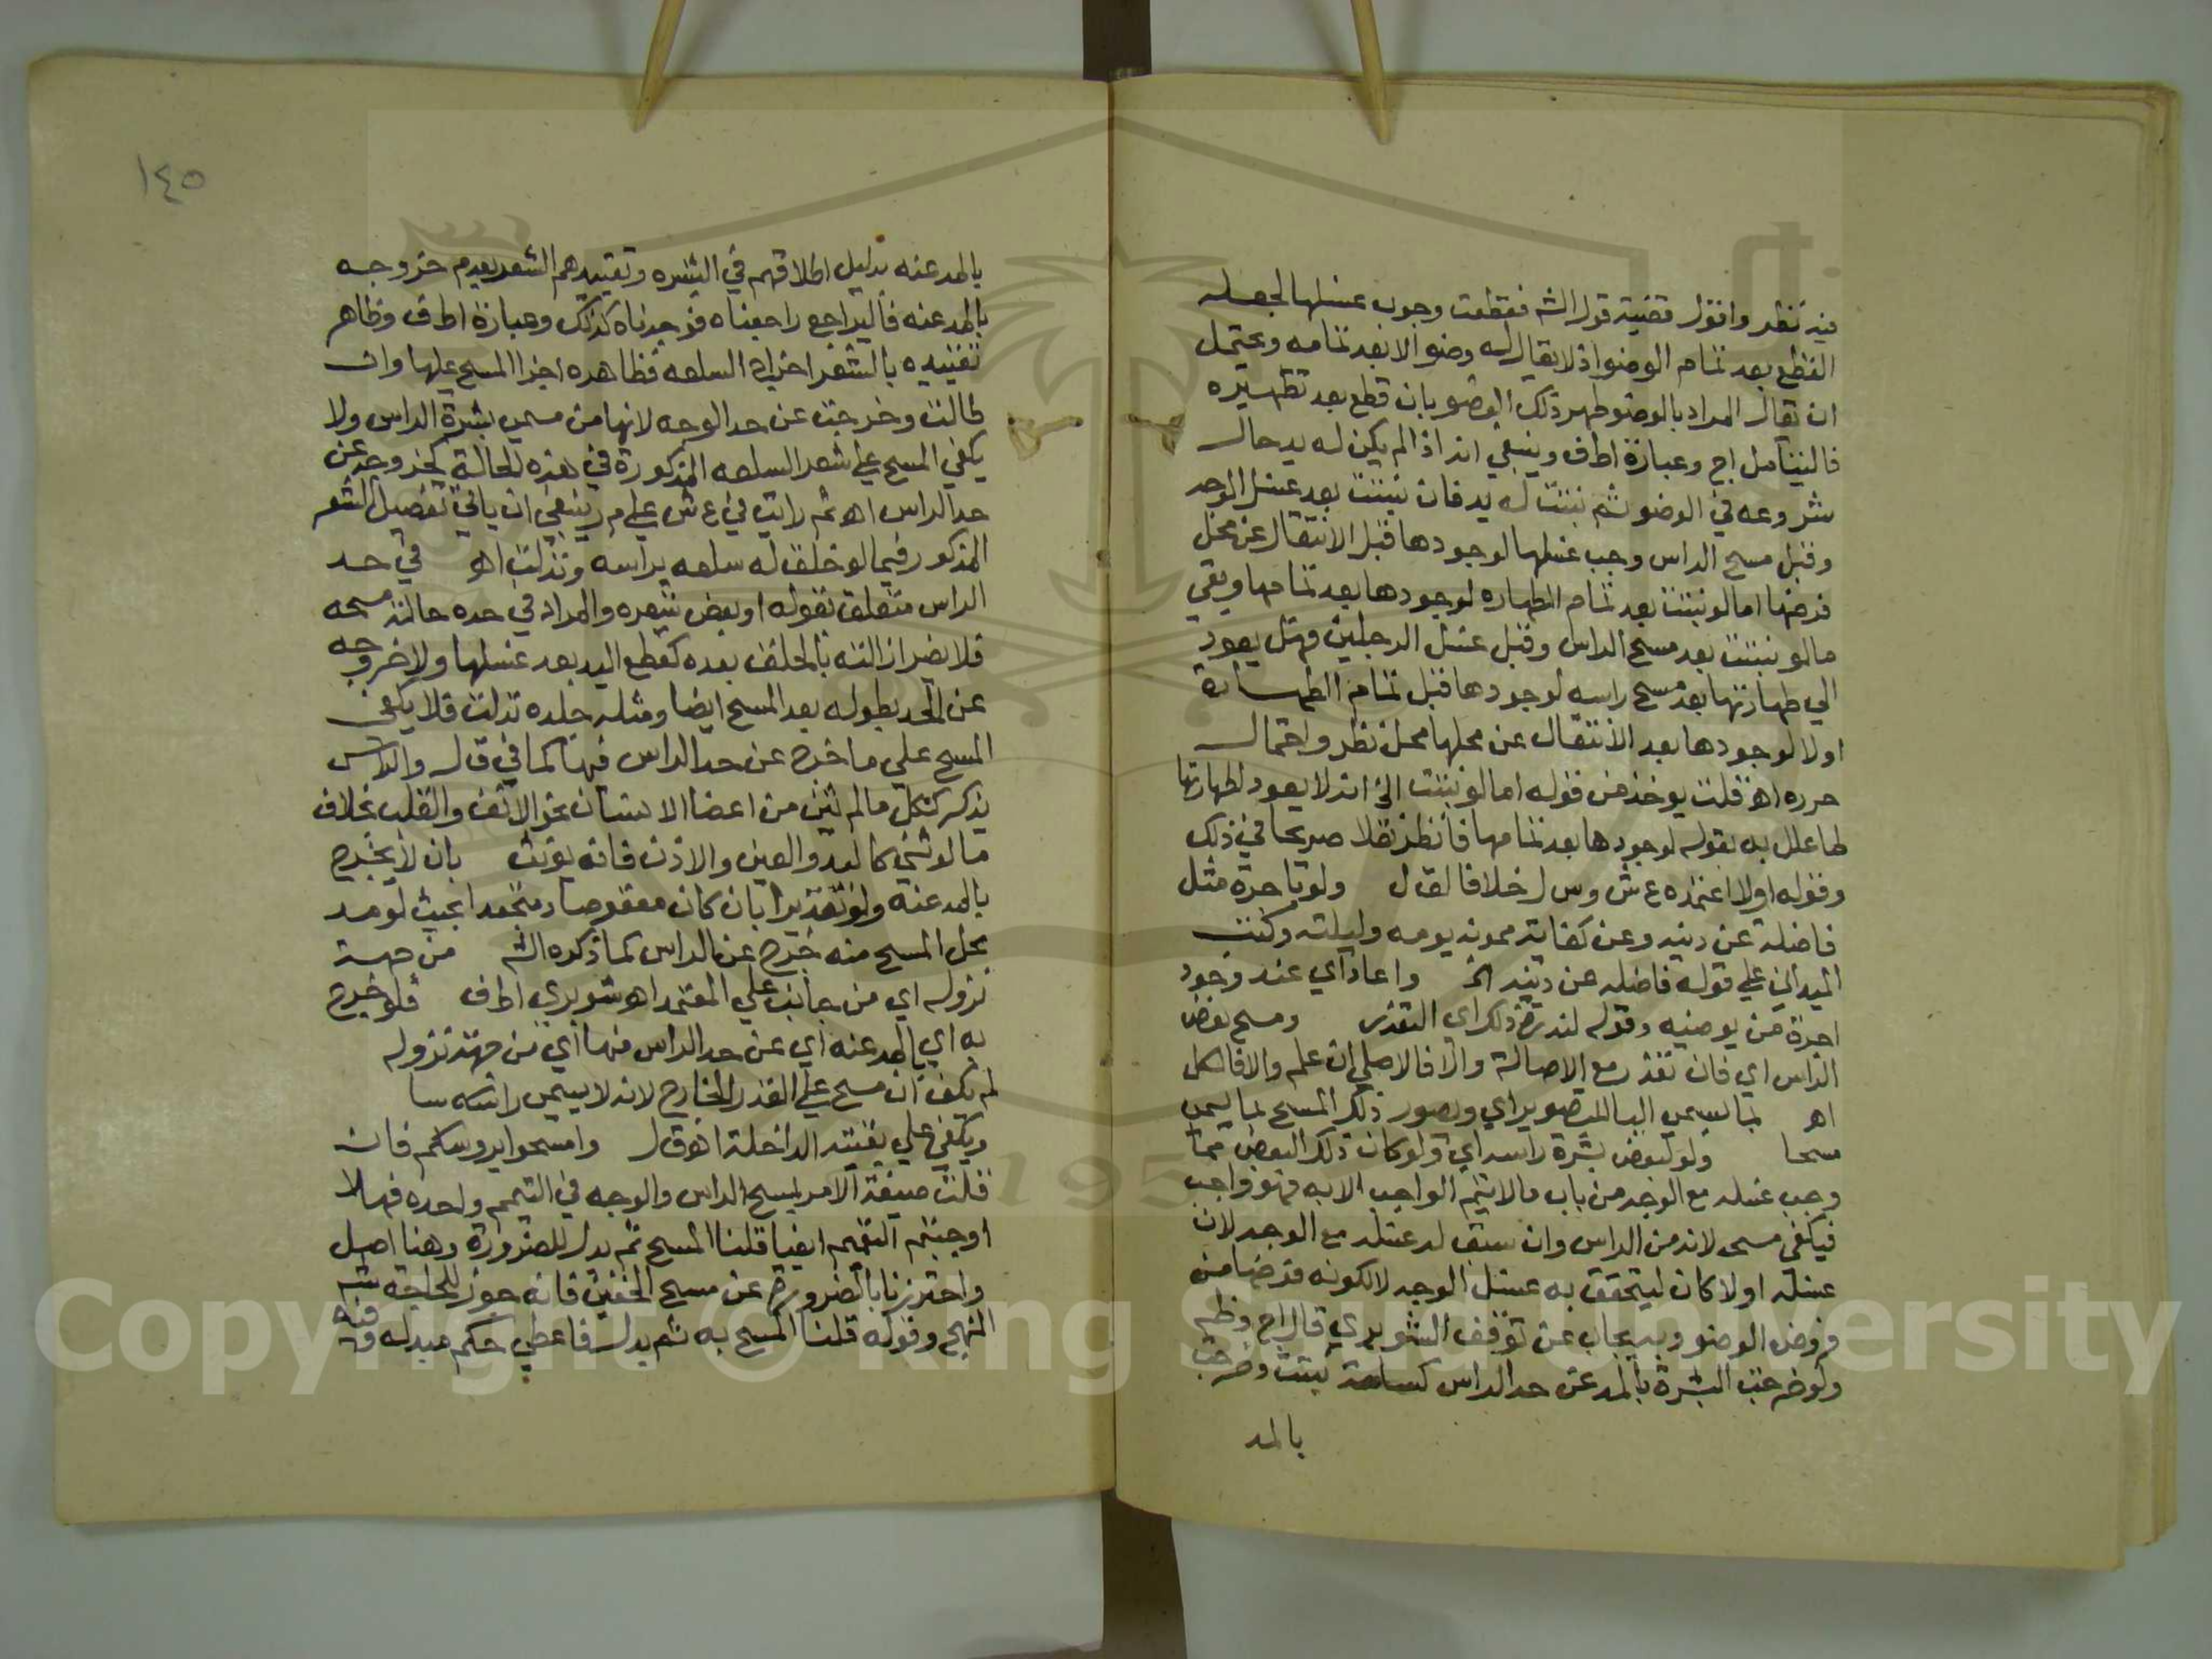 فيه نظر واقول قضية قول الشم فقطعت وجوب غسلها لجعله
القطع بعد تمام الوضوء اذ لا يقال له وضوا الا بعد تمامه ويحتمل
ان يقال المراد بالوضو طهر ذلك العضو بان قطع بعد تطهيره
فاليتامل اج وعبارة اط ف وينبغي انه اذا لم يكن له يد حال
شروعه في الوضو ثم نبتت له يد فان نبتت بعد غسل الوجه
وقبل مسح الراس وجب غسلها لوجودها قبل الانتقال عن محل
فرضها اما لو نبتت بعد تمام الطهاره لوجودها بعد تمامها وبقي
مالو نبتت بعد مسح الراس وقبل غسل الرجلين فهل يعود
الي طهارتها بعد مسح راسه لوجودها قبل تمام الطهارة
اولا لوجودها بعد الانتقال عن محلها محل نظر واحتمال
حرره اهـ قلت يوخذ من قوله اما لو نبتت الخ انه لا يعود لطهارتها
لما علل به بقوله لوجودها بعد تمامها فانظر نقلا صريحا في ذلك
وقوله اولا اعتمده ع ش وس ل خلافا لق ل ولو باجرة مثل
فاضلة عن دينه وعن كفاية ممونه يومه وليلته وكتب
الميداني علي قوله فاضله عن دينه الخ واعاد اي عند وجود
اجرة من يوضيه وقوله لندرة ذلك اي التعذر ومسح بعض
الراس اي فان تعذر مع الاصالة والا فالاصلي ان علم والا فالكل
اهـ بما يسمي البا للتصوير اي وصور ذلك المسح بما يسمي
مسحا ولو لبعض بشرة راسه اي ولو كان ذلك البعض مما
وجب غسله مع الوجه من باب مالا يتم الواجب الا به فهو واجب
فيكفي مسحه لانه من الراس وان سبق له غسله مع الوجه لان
غسله اولا كان ليتحقق به غسل الوجه لا لكونه فرضا من
فروض الوضو وبه يجاب عن توقف الشوبري قال اج وظم
ولو خرجت البشرة بالمد عن حد الراس كسلعة نبتت وخرجت
بالمد
١٤٥
بالمد عنه بدليل اطلاقهم في البشره وتقييدهم الشعر بعدم خروجه
بالمد عنه فاليراجع راجعناه فوجدناه كذلك وعبارة اط ف وظاهر
تقييده بالشعر اخراج السلعه فظاهره اجزا المسح عليها وان
طالت وخرجت عن حد الوجه لانها من مسمي بشرة الراس ولا
يكفي المسح علي شعر السلعه المذكورة في هذه الحالة لخروجه عن
حد الراس اهـ ثم رايت في ع ش علي م ر ينبغي ان ياتي تفصيل الشعر
المذكور فيما لو خلق له سلعه براسه وتدلت اهـ في حد
الراس متعلق بقوله او بعض شعره والمراد في حده حالة مسحه
فلا يضر ازالته بالحلق بعده كقطع اليد بعد غسلها ولا خروجه
عن الحد بطوله بعد المسح ايضا ومثله جلده تدلت فلا يكفي
المسح علي ما خرج عن حد الراس فيها كما في ق ل والراس
يذكر ككل مالم يثن من اعضا الانسان نحو الانف والقلب بخلاف
مالو ثني كاليد والعين والاذن فانه يونث بان لا يخرج
بالمد عنه ولو تقديرا بان كان معقوصا او متجعدا بحيث لو مد
محل المسح منه خرج عن الراس كما ذكره الشم من جهة
نزوله اي من جانب علي المعتمد اهـ شوبري اط ف فلو خرج
به اي بالمد عنه اي عن حد الراس منها اي من جهة نزوله
لم يكف ان مسح علي القدر الخارج لانه لا يسمي راسا
ويكفي علي بقيته الداخلة اهـ ق ل وامسحوا بروسكم فان
قلت صيغة الامر بمسح الراس والوجه في التيمم واحده فهلا
اوجبتم التعميم ايضا قلنا المسح ثم بدل للضرورة وهنا اصل
واحترزنا بالضرورة عن مسح الخفين فانه جوز للحاجة شم
المنهج وقوله قلنا المسح به ثم بدل فاعطي حكم مبدله وفيه